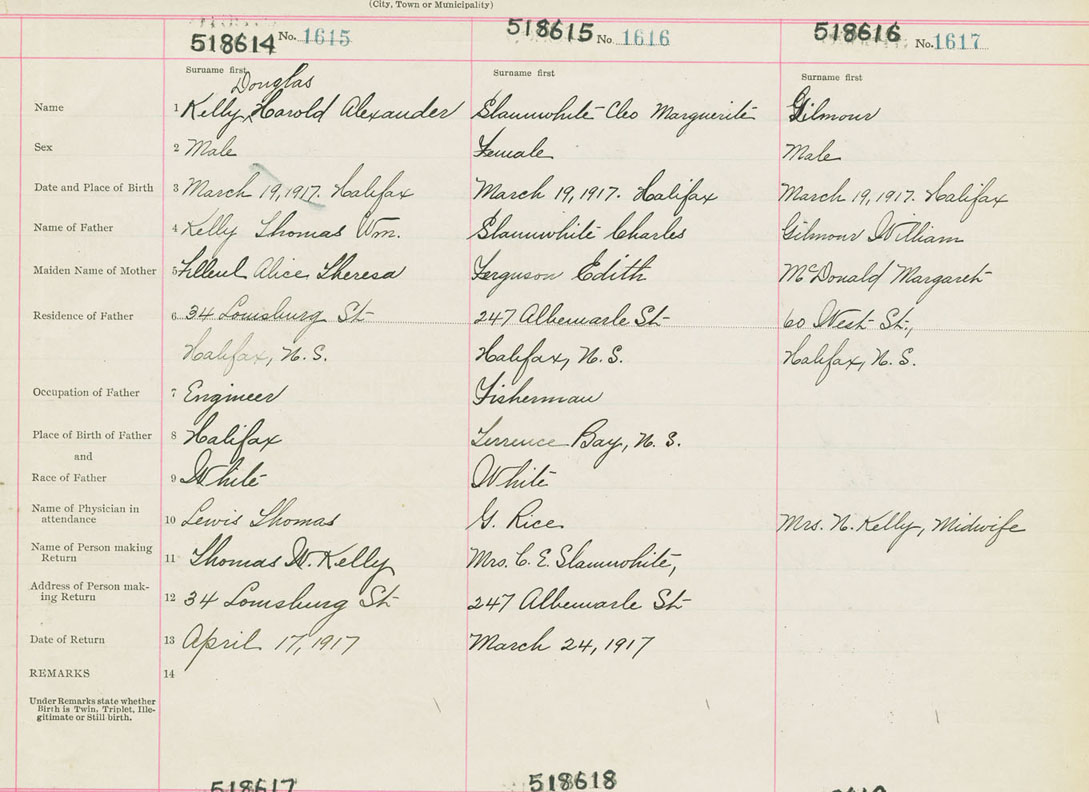 (City, Town or Municipality)
518614 No. 1615 518615 No. 1616 518616 No. 1617
Surname first Surname first Surname first
Douglas
Name 1 Kelly, Harold Alexander Slaunwhite Cleo Marguerite Gilmour
Sex 2 Male Female Male
Date and Place of Birth 3 March 19, 1917. Halifax March 19, 1917. Halifax March 19, 1917. Halifax
Name of Father 4 Kelly Thomas Wm. Slaunwhite Charles Gilmour William
Maiden Name of Mother 5 Alice Theresa Ferguson Edith McDonald Margaret
Residence of Father 6 34 Louisburg St 247 Albemarle St 60 West St.,
Halifax, N.S. Halifax, N.S. Halifax, N.S.
Occupation of Father 7 Engineer Fisherman
Place of Birth of Father 8 Halifax Terrence Bay, N.S.
and
Race of Father 9 White White
Name of Physician in
attendance 10 Lewis Thomas G. Rice Mrs. N. Kelly, Midwife
Name of Person making
Return 11 Thomas W. Kelly Mrs. C. E. Slaunwhite,
Address of Person mak-
ing Return 12 34 Louisburg St 247 Albemarle St
Date of Return 13 April 17, 1917 March 24, 1917
REMARKS 14
Under Remarks state whether
Birth is Twin, Triplet, Ille-
gitimate or Still birth.
518617 518618